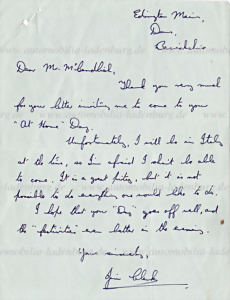 Edington Mains,
Duns,
Berwickshire
Dear Mr. M
Thank you very much
for your letter inviting me to come to your
"At Home" Day.
Unfortunately, I will be in Italy
at the time, so I'm afraid I shan't be able
to come. It is a great pity, but it is not
possible to do everything one would like to do.
I hope that your "Day" goes off well, and
the "festivities" even better in the evening.
Yours sincerely,
Jim Clark